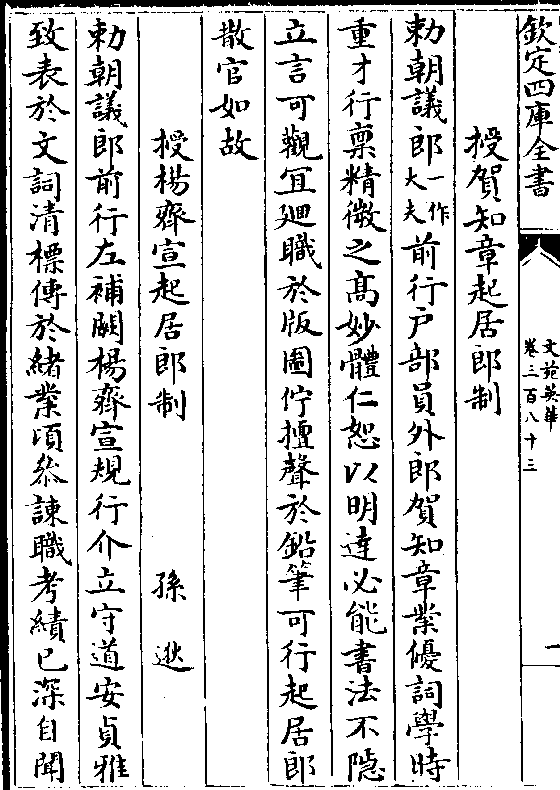 欽定四庫全書
文苑英華
卷三百八十三
一
授賀知章起居郎制
勅朝議郎一作大夫前行戶部員外郎賀知章業優詞學時
重才行稟精微之高妙體仁恕以明達必能書法不隠
立言可觀冝廻職於版圖佇擅聲於鉛筆可行起居郎
散官如故
授楊齊宣起居郎制
孫逖
勅朝議郎前行左補闕楊齊宣規行介立守道安貞雅
致表於文詞清標傳於緒業頃叅諫職考績已深自聞